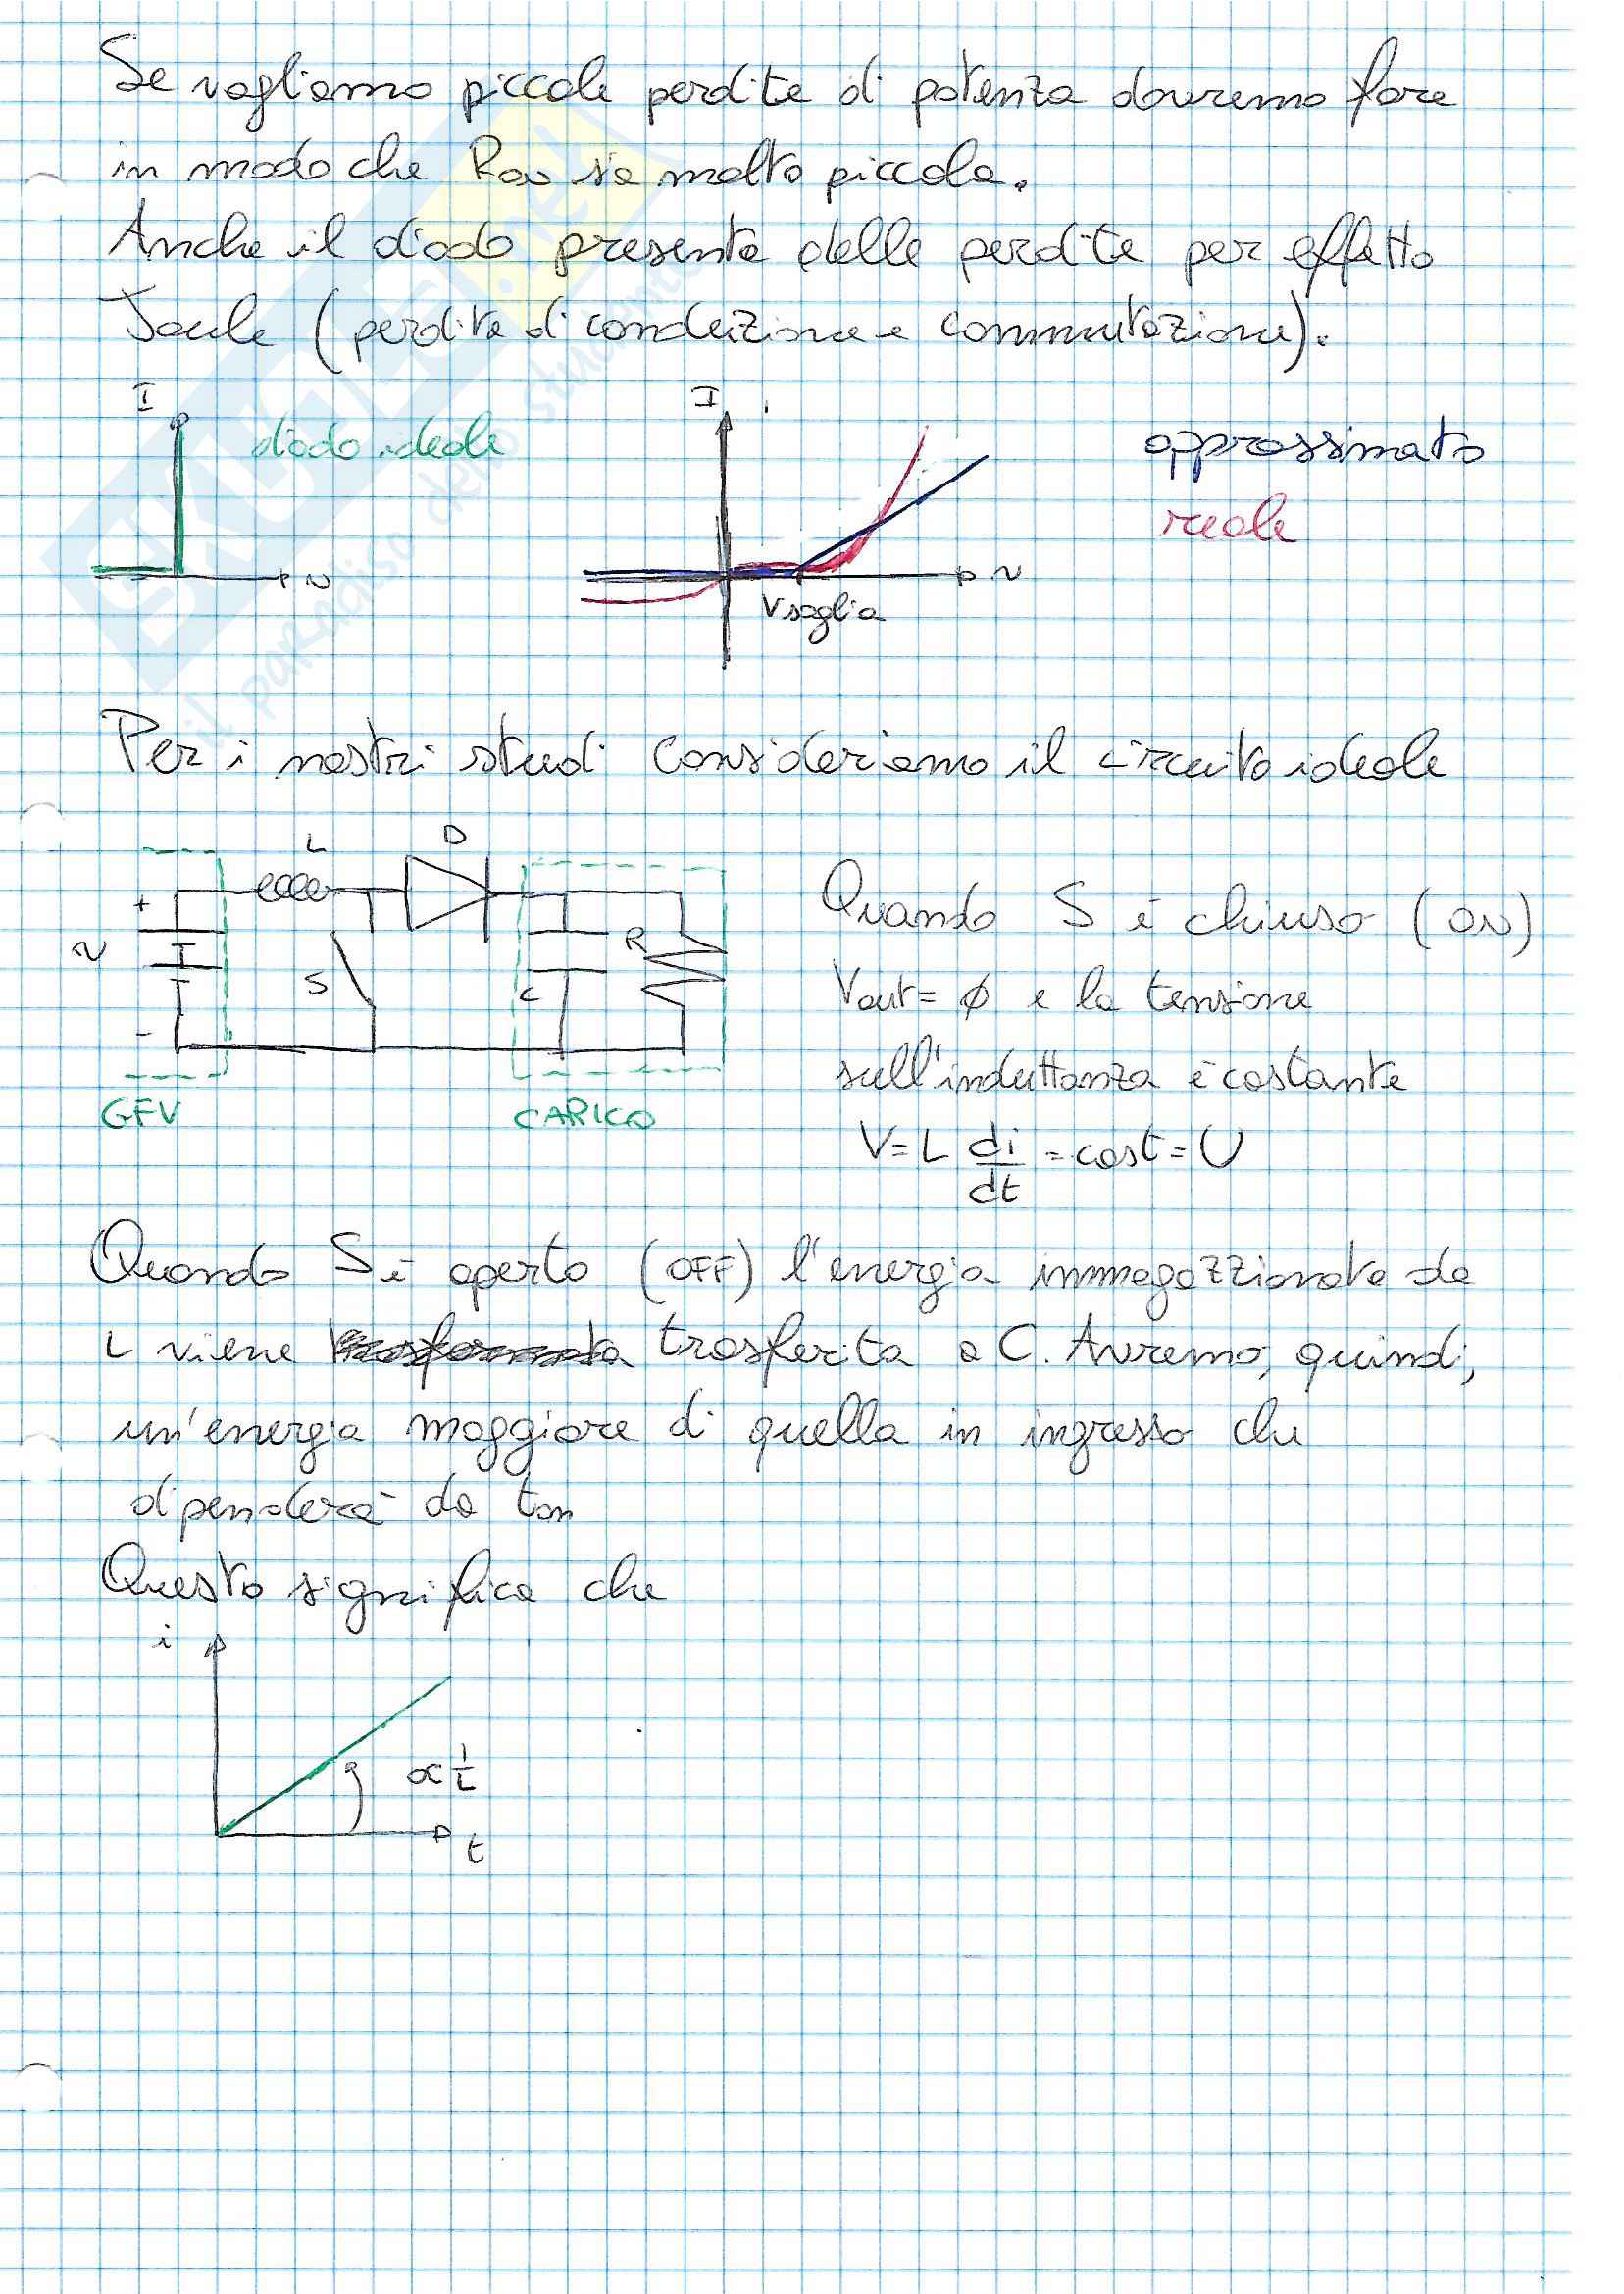 Se vogliamo piccole perdite di potenza dovremo fare
in modo che Ron sia molto piccola.
Anche il diodo presenta delle perdite per effetto
Joule (perdite di conduzione e commutazione).
I
diodo ideale
v
I
approssimato
reale
v
Vsoglia
Per i nostri studi consideriamo il circuito ideale
L
D
+
v
-
S
C
R
GFV
CARICO
Quando S è chiuso (ON)
Vout = ϕ e la tensione
sull'induttanza è costante
V = L di/dt = cost = U
Quando S è aperto (OFF) l'energia immagazzionata da
L viene trasferita a C. Avremo, quindi,
un'energia maggiore di quella in ingresso che
dipenderà da ton
Questo significa che
i
∝ 1/L
t
SKUOLA.net
il paradiso dello studente